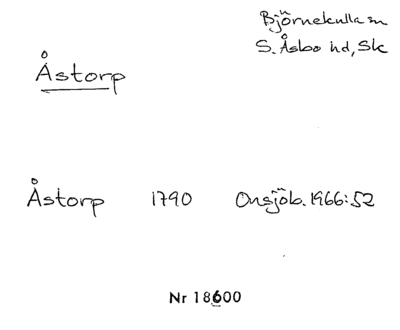 Björnekulla sn
S. Åsbo hd, Sk
Åstorp
Åstorp 1790 Onsjöb. 1966:52
Nr 18600